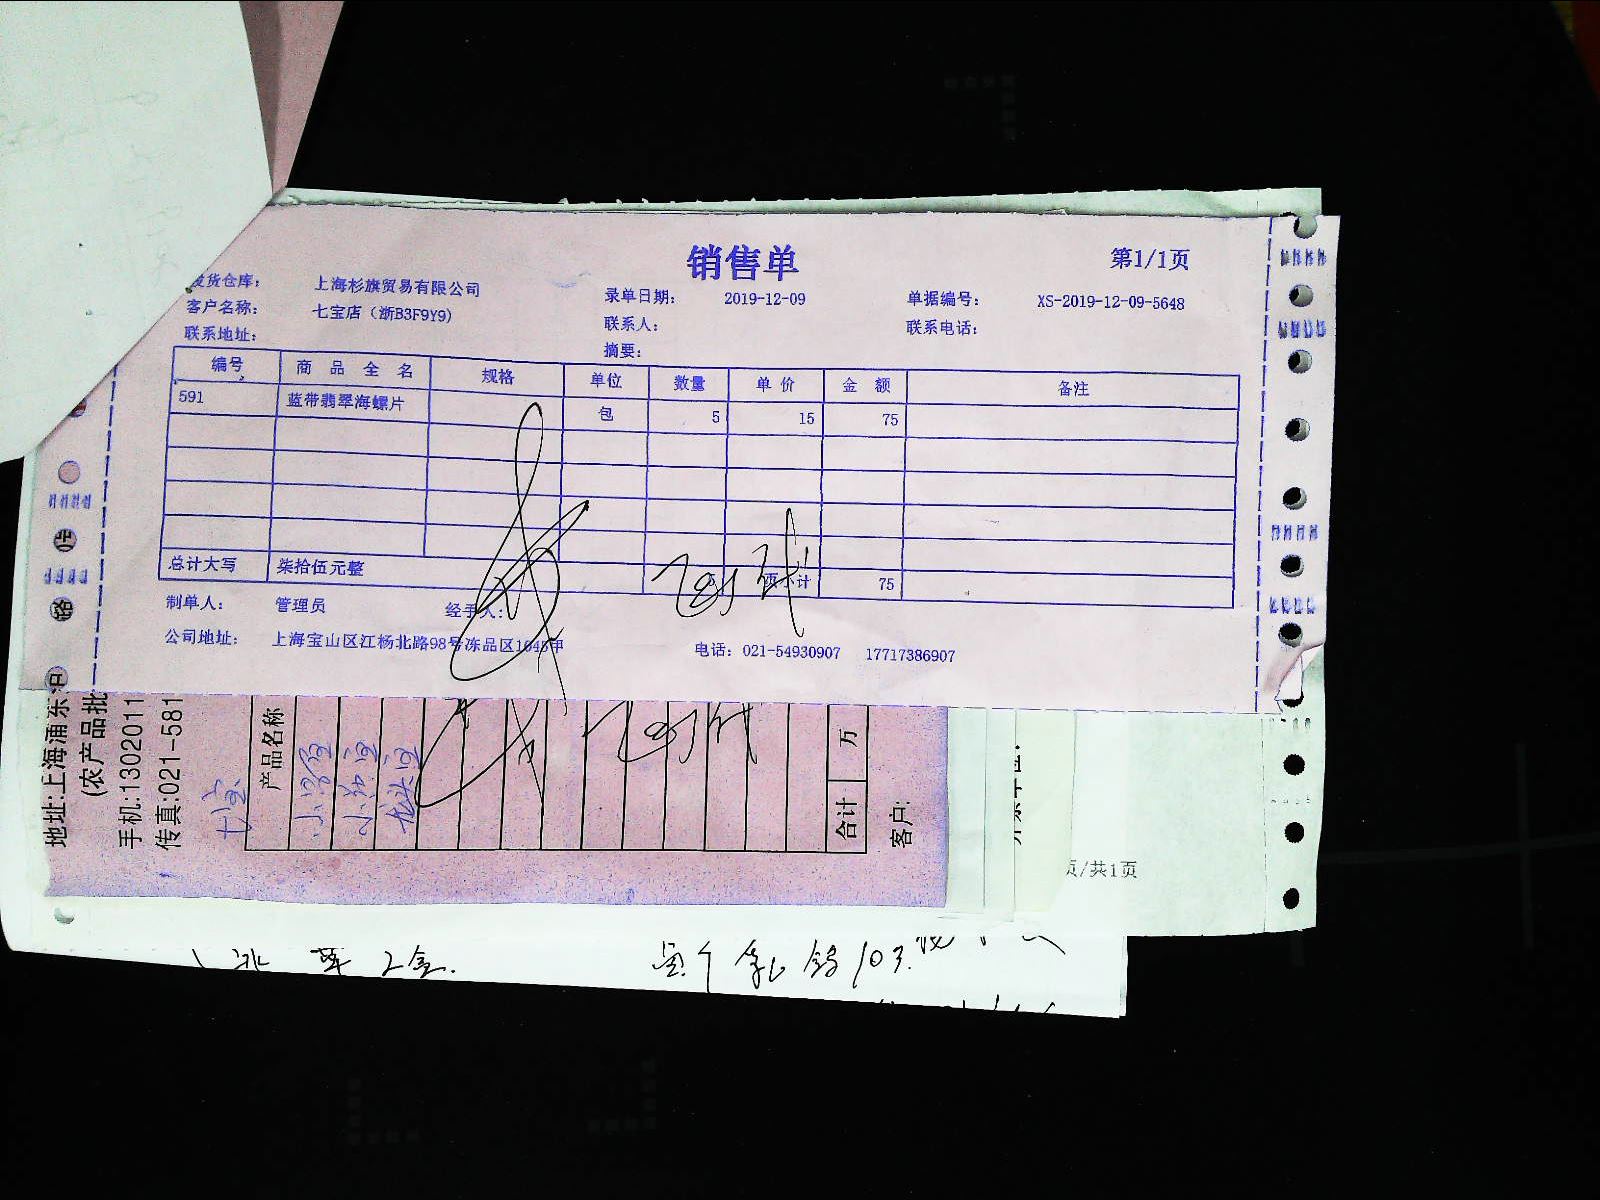 销售单
第1/1页
发货仓库： 上海杉旗贸易有限公司 录单日期： 2019-12-09 单据编号： XS-2019-12-09-5648
客户名称： 七宝店（浙B3F9Y9） 联系人： 联系电话：
联系地址： 摘要：
编号 商品全名 规格 单位 数量 单价 金额 备注
591 蓝带翡翠海螺片 包 5 15 75
总计大写 柒拾伍元整 页小计 75
制单人： 管理员 经手人：
公司地址： 上海宝山区江杨北路98号冻品区1045甲 电话：021-54930907 17717386907
地址:上海浦东沪
(农产品批
手机:1302011
传真:021-581
七宝
产品名称
合计 万
客户:
页/共1页
2盒.
103.